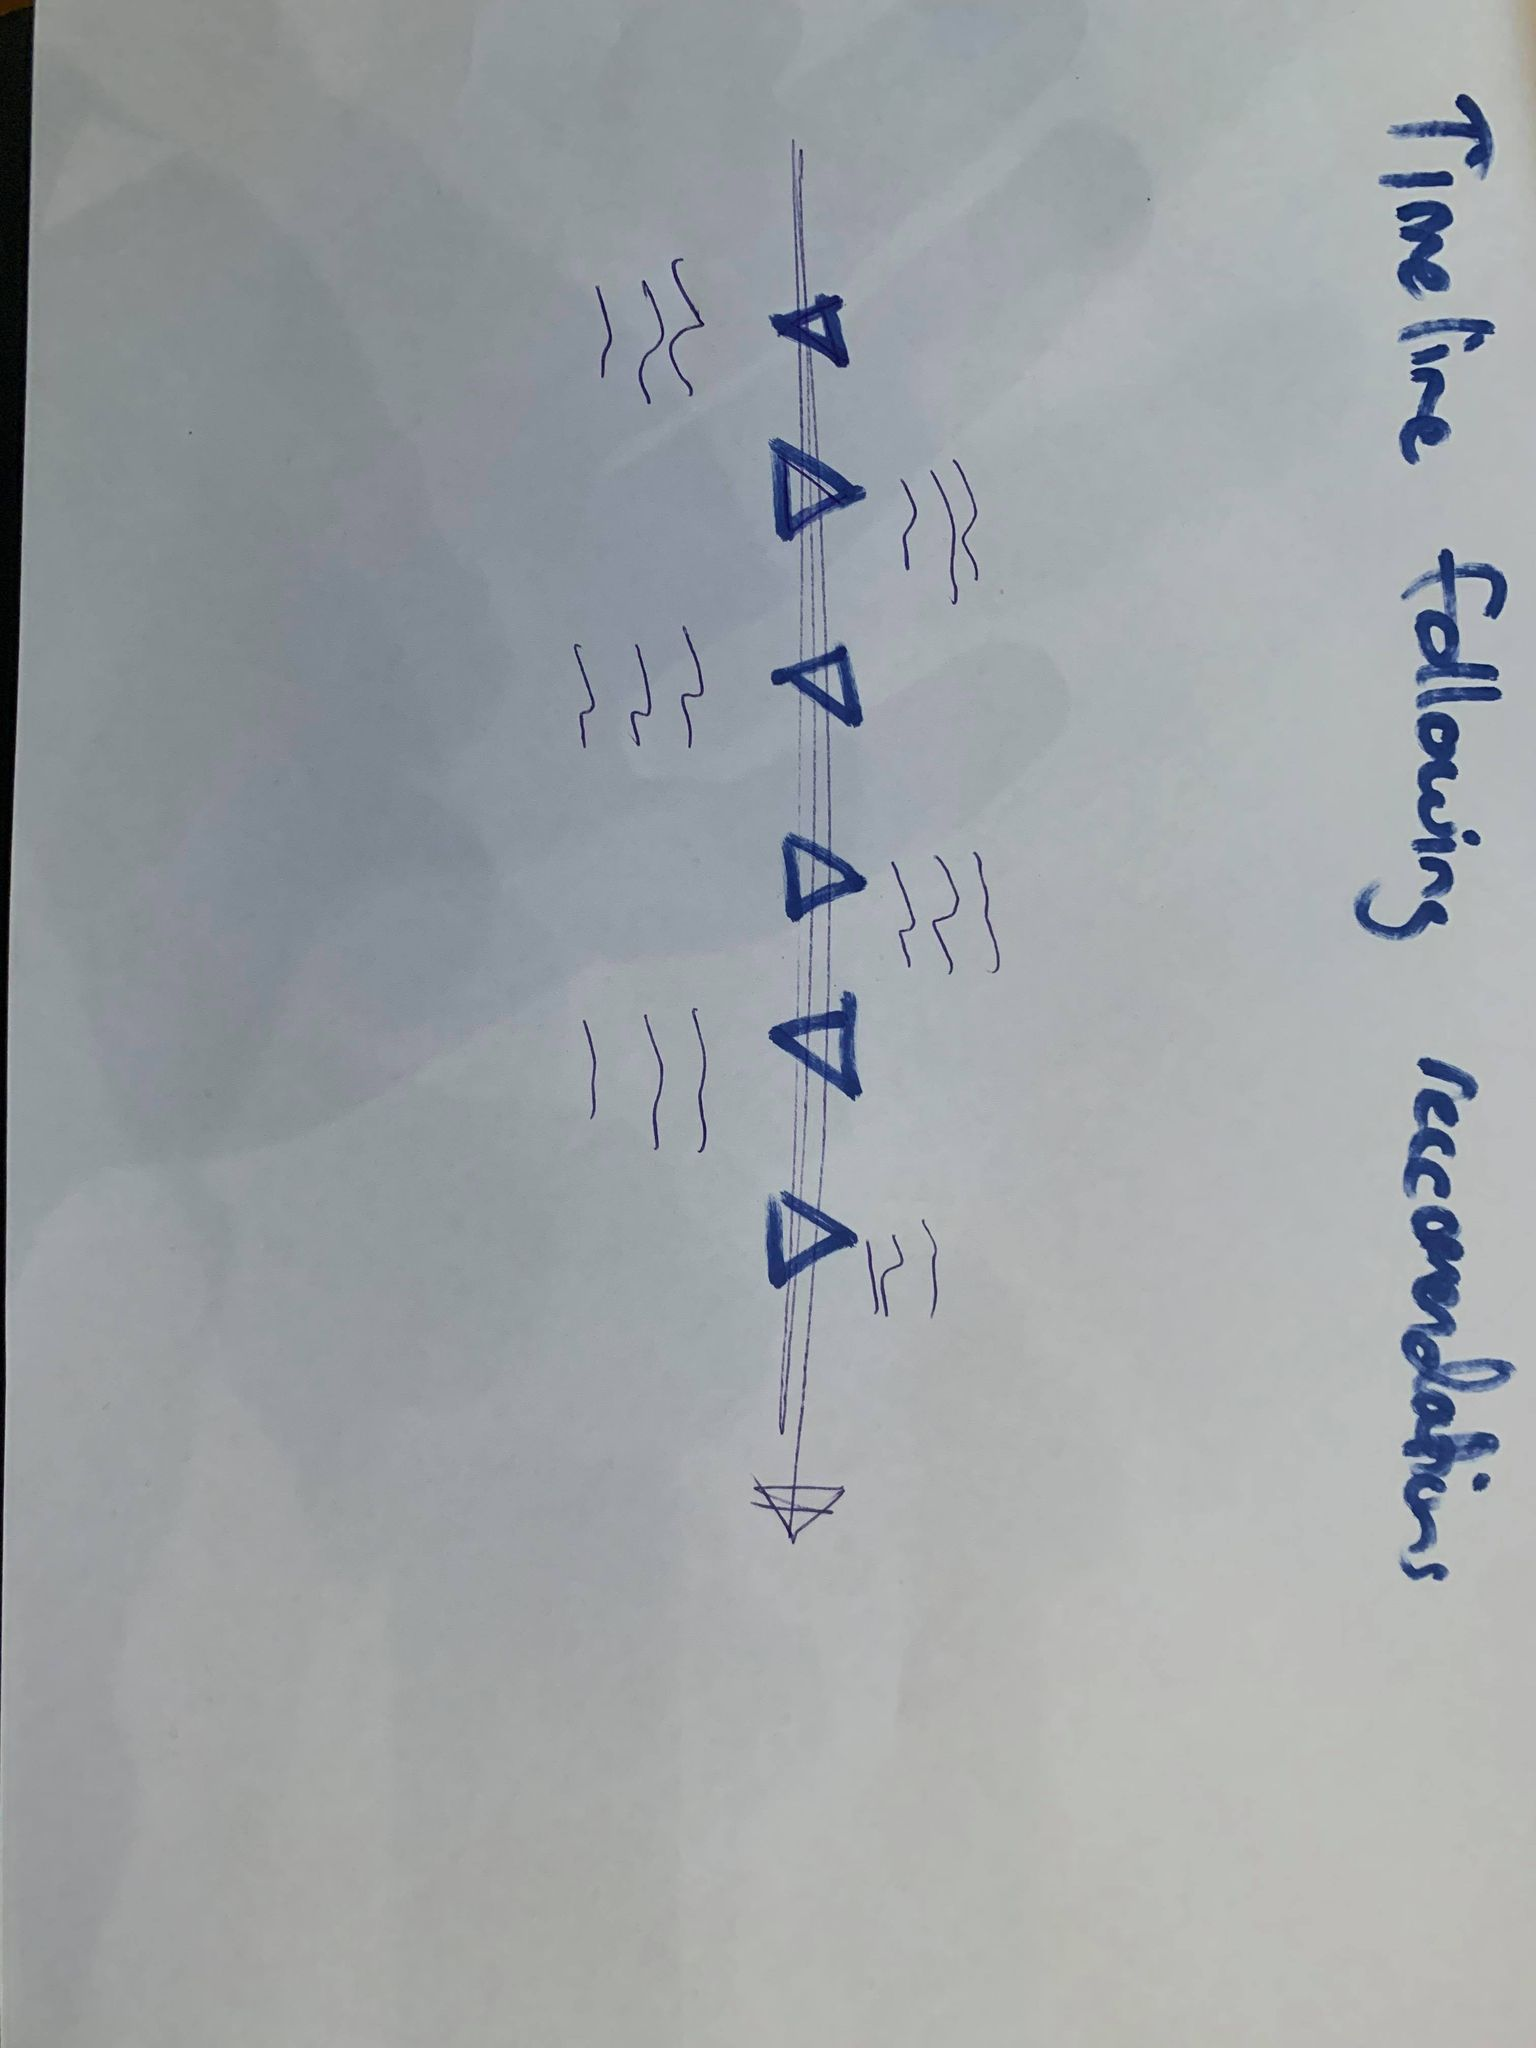 Timeline following reccomendations